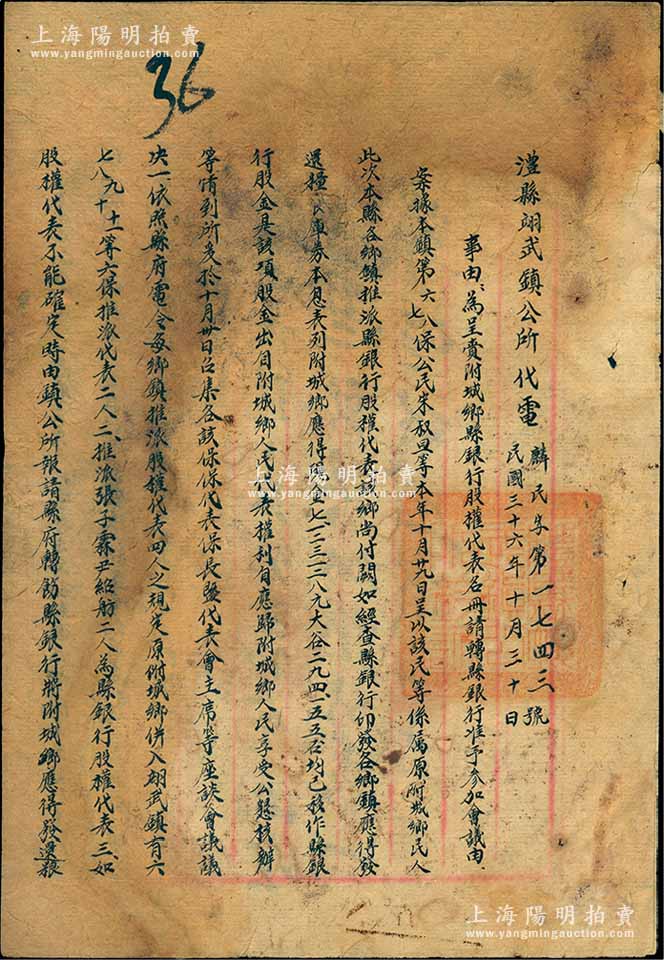 上海陽明拍賣
www.yangmingauction.com
36
澧縣翊武鎮公所代電 麟民字第一七四三號
民國三十六年十月三十日
事由：為呈賫附城鄉縣銀行股權代表名冊請轉縣銀行准予參加會議由
案據本鎮第六七八保公民朱叔里等本年十月廿九日呈以該民等係屬原附城鄉民人
此次本縣各鄉鎮推派縣銀行股權代表鄉尚付闕如經查縣銀行印發各鄉鎮應得發
還糧庫券本息表列附城鄉應得七二三二八九大谷二九四一五五石均已移作縣銀
行股金是該項股金出自附城鄉人民代表權利自應歸附城鄉人民享受公懇核辦
等情到所爰於十月卅日召集各該保保代表保長暨代表會主席等座談會議議
決一依照縣府電令每鄉鎮推派股權代表四人之規定原附城鄉併入翊武鎮有六
七八九十十一等六保推派代表二人二、推派張子霖尹紹舫二人為縣銀行股權代表三、如
股權代表不能確定時由鎮公所報請縣府轉飭縣銀行將附城鄉應得發還糧
上海陽明拍賣
www.yangmingauction.com
上海陽明拍賣
www.yangmingauction.com